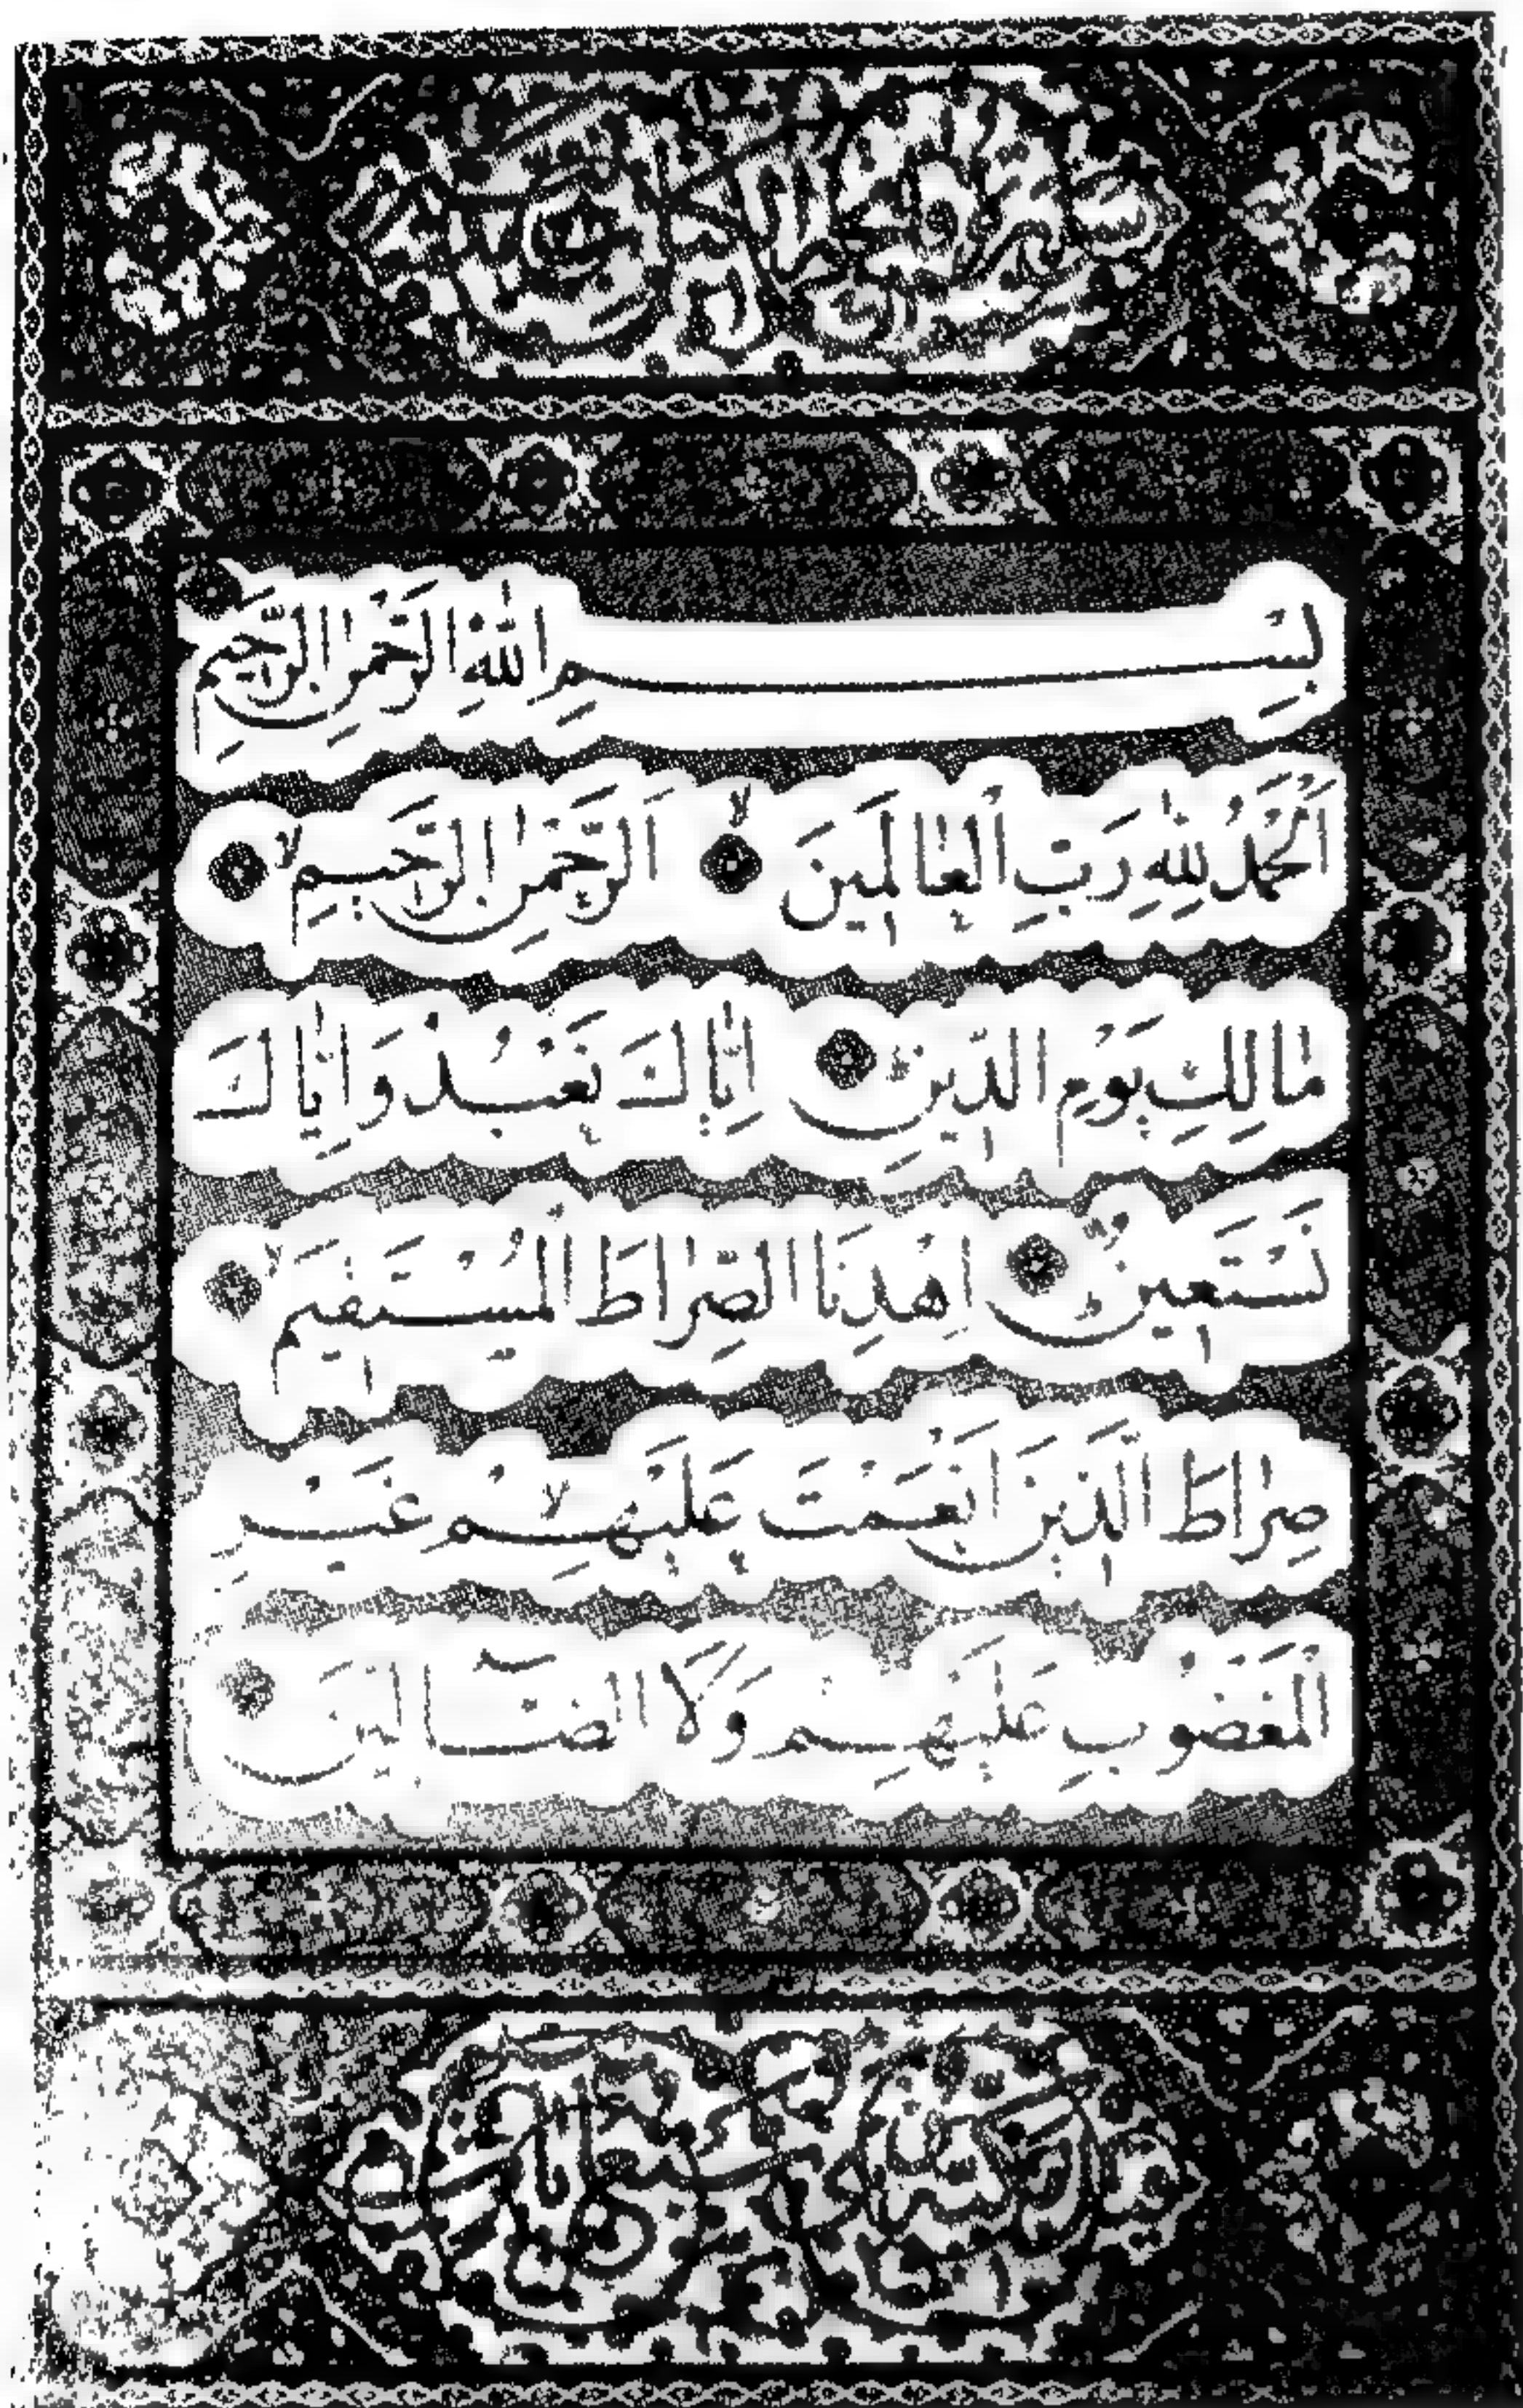 بِسْمِ اللهِ الرَّحْمٰنِ الرَّحِيمِ
اَلْحَمْدُ لِلّٰهِ رَبِّ الْعَالَمِينَ لا اَلرَّحْمٰنِ الرَّحِيمِ لا
مَالِكِ يَوْمِ الدِّينِ اِيَّاكَ نَعْبُدُ وَاِيَّاكَ
نَسْتَعِينُ اِهْدِنَا الصِّرَاطَ الْمُسْتَقِيمَ لا
صِرَاطَ الَّذِينَ اَنْعَمْتَ عَلَيْهِمْ لا غَيْرِ
الْمَغْضُوبِ عَلَيْهِمْ وَلَا الضَّٓالِّينَ